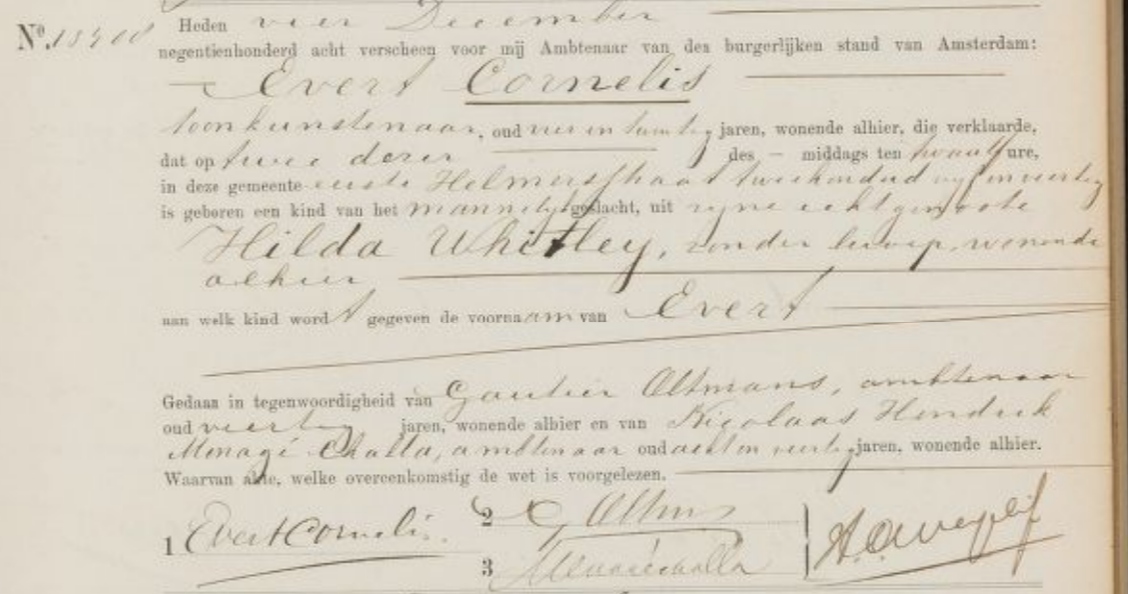 Nº.
Heden vier December
negentienhonderd acht verscheen voor mij Ambtenaar van den burgerlijken stand van Amsterdam:
Evert Cornelis
toonkunstenaar, oud vier en twintig jaren, wonende alhier, die verklaarde,
dat op twee dezer des – middags ten twaalf ure,
in deze gemeente eerste Helmersstraat tweehonderd vyf en veertig
is geboren een kind van het mannelyk geslacht, uit zyne echtgenoote
Hilda Whitley, zonder beroep, wonende
alhier
aan welk kind wordt gegeven de voornaam van Evert
Gedaan in tegenwoordigheid van Gautier Oltmans, ambtenaar
oud veertig jaren, wonende alhier en van Nicolaas Hendrik
Menagé Challa, ambtenaar oud acht en veertig jaren, wonende alhier.
Waarvan akte, welke overeenkomstig de wet is voorgelezen.
1 Evert Cornelis.
2 G Oltmans
3 Menagéchalla